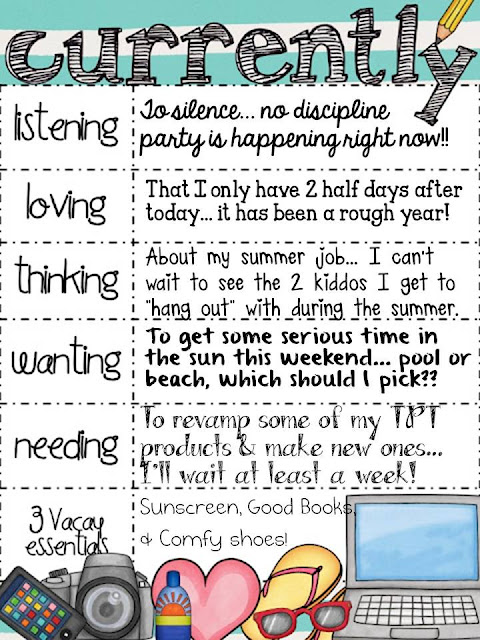 currently
listening
To silence... no discipline
party is happening right now!!
loving
That I only have 2 half days after
today... it has been a rough year!
thinking
About my summer job... I can't
wait to see the 2 kiddos I get to
"hang out" with during the summer.
wanting
To get some serious time in
the sun this weekend... pool or
beach, which should I pick??
needing
To revamp some of my TPT
products & make new ones...
I'll wait at least a week!
3 Vacay
essentials
Sunscreen, Good Books,
& Comfy shoes!